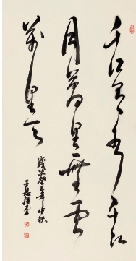 千江有水千江
月萬里無雲
萬里天
年中秋